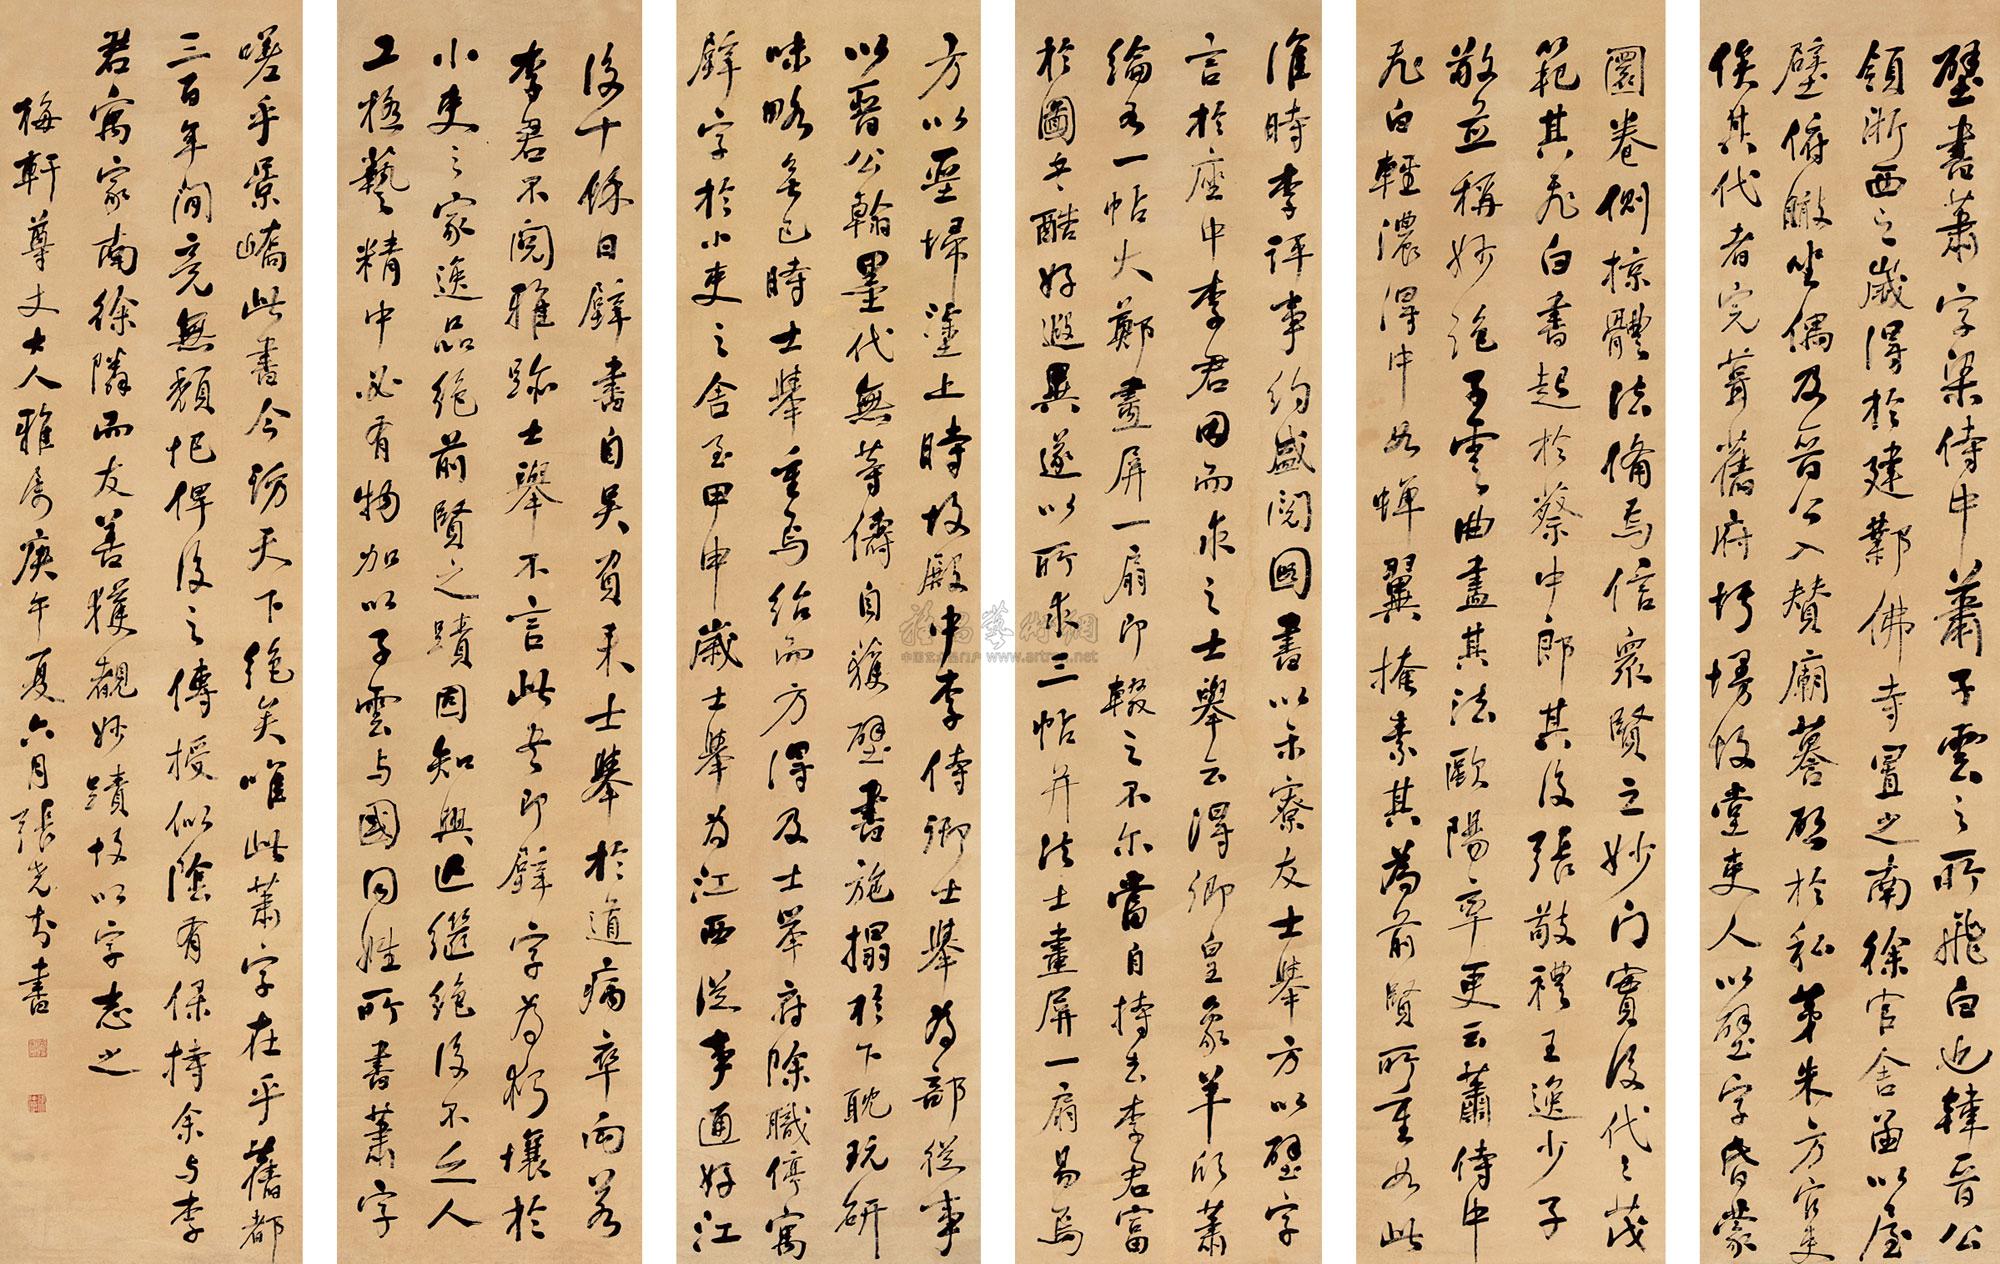 壁書蕭字梁侍中蕭子雲之所飛白也韓晉公
領浙西之歲得於建鄴佛寺置之南徐官舍函以屋
壁俯瞰坐偶及晉公入贊廟暮啟於私第朱方官吏
俟其代者完葺舊府圬墁故堂吏人以壁字昏蒙
圜卷側掠體法備焉信眾賢之妙門實後代之茂
範其飛白書起於蔡中郎其後張敬禮王逸少子
敬並稱妙絕子雲曲盡其法歐陽率更云蕭侍中
飛白輕濃得中如蟬翼掩素其為前賢所重如此
淮時李評事約盛閱圖書以示寮友士舉方以壁字
言於座中李君因而求之士舉云得卿皇象羊欣蕭
綸各一帖火鄭畫屏一扇即輟之不尔當自持去李君富
於圖書酷好遐異遂以所求三帖并法士畫屏一扇易焉
方以堊埽塗上時故殿中李侍卿士舉為部從事
以晉公翰墨代無等儔自獲壁書施搨於下耽玩研
味略無已時士舉重焉給而方得及士舉府除職停寓
壁字於小吏之舍至甲申歲士舉為江西從事通好江
後十餘日壁書自吳負來士舉於道病卒向若
李君不閱雅跡士舉不言此書即壁字為朽壤於
小吏之家逸品絕前賢之蹟固知興亡繼絕後不乏人
工極藝精中必有物加以子雲与國同姓所書蕭字
嗟乎景嶠此書今訪天下絕矣唯此蕭字在乎舊都
三百年間竟無頹圮俾後之傳授似陰有保持余与李
君寓家南徐隣而友善獲觀妙蹟故以字志之
梅軒尊丈大人雅属庚午夏六月張光書